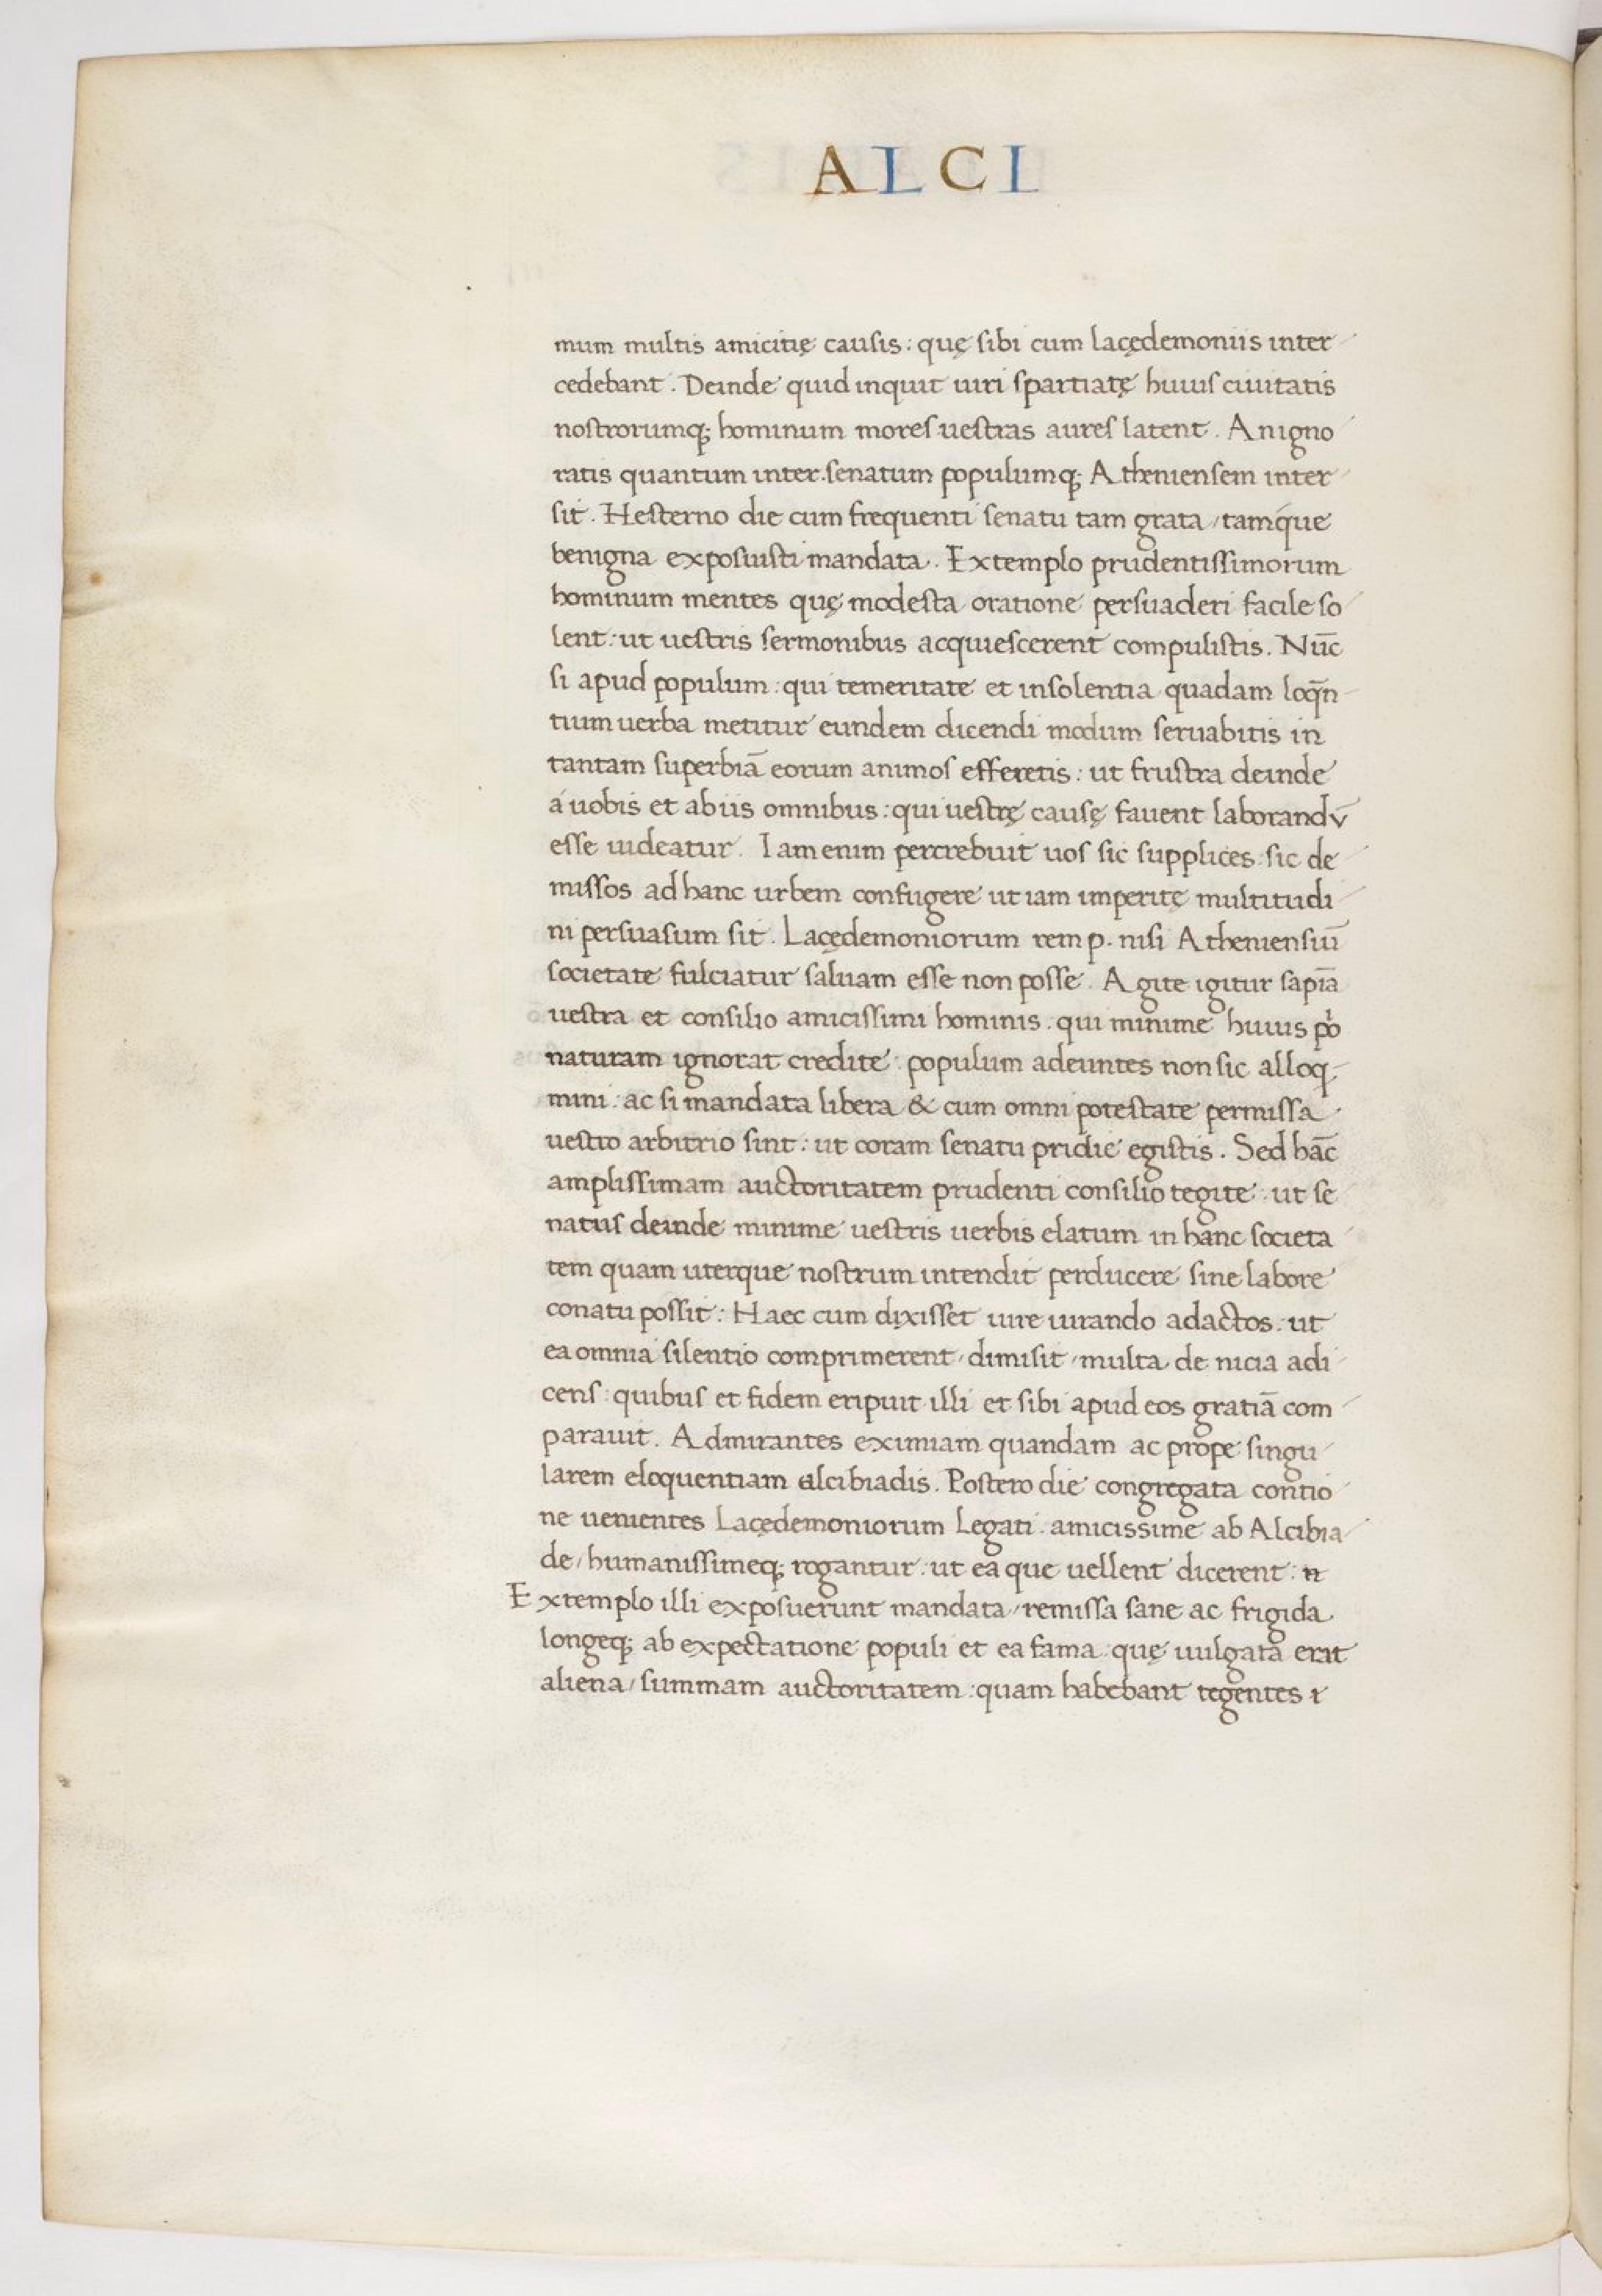 ALCI
mum multis amicitię causis : quę sibi cum lacędemoniis inter
cedebant . Deinde quid inquit uiri spartiatę huius ciuitatis
nostrorumq; hominum mores uestras aures latent . An igno
ratis quantum inter senatum populumq; Atheniensem inter
sit . Hesterno die cum frequenti senatu tam grata / tamque
benigna exposuisti mandata . Extemplo prudentissimorum
hominum mentes quę modesta oratione persuaderi facile so
lent : ut uestris sermonibus acquiescerent compulistis . Nūc
si apud populum : qui temeritate et insolentia quadam loq̄n
tium uerba metitur eundem dicendi modum seruabitis in
tantam superbiā eorum animos efferetis : ut frustra deinde
á uobis et ab iis omnibus : qui uestrę causę fauent laborandū
esse uideatur . Iam enim percrebuit uos sic supplices : sic de
missos ad hanc urbem confugere ut iam imperitę multitudi
ni persuasum sit . Lacędemoniorum rem p. nisi Atheniensiū
societate fulciatur saluam esse non posse . Agite igitur sapīa
uestra et consilio amicissimi hominis . qui minime huius pò
naturam ignorat credite : populum adeuntes non sic alloq;
mini : ac si mandata libera & cum omni potestate permissa
uestro arbitrio sint : ut coram senatu pridie egistis . Sed hāc
amplissimam auctoritatem prudenti consilio tegite : ut se
natus deinde minime uestris uerbis elatum in hanc societa
tem quam uterque nostrum intendit perducere sine labore
conatu possit : Haec cum dixisset iure iurando adactos : ut
ea omnia silentio comprimerent / dimisit / multa de nicia adi
cens : quibus et fidem eripuit illi et sibi apud eos gratiā com
parauit . Admirantes eximiam quandam ac prope singu
larem eloquentiam alcibiadis . Postero die congregata contio
ne uenientes Lacędemoniorum Legati . amicissime ab Alcibia
de / humanissimeq; rogantur : ut ea que uellent dicerent :
Extemplo illi exposuerunt mandata / remissa sane ac frigida
longeq; ab expectatione populi et ea fama : quę uulgata erat
aliena / summam auctoritatem : quam habebant tegentes